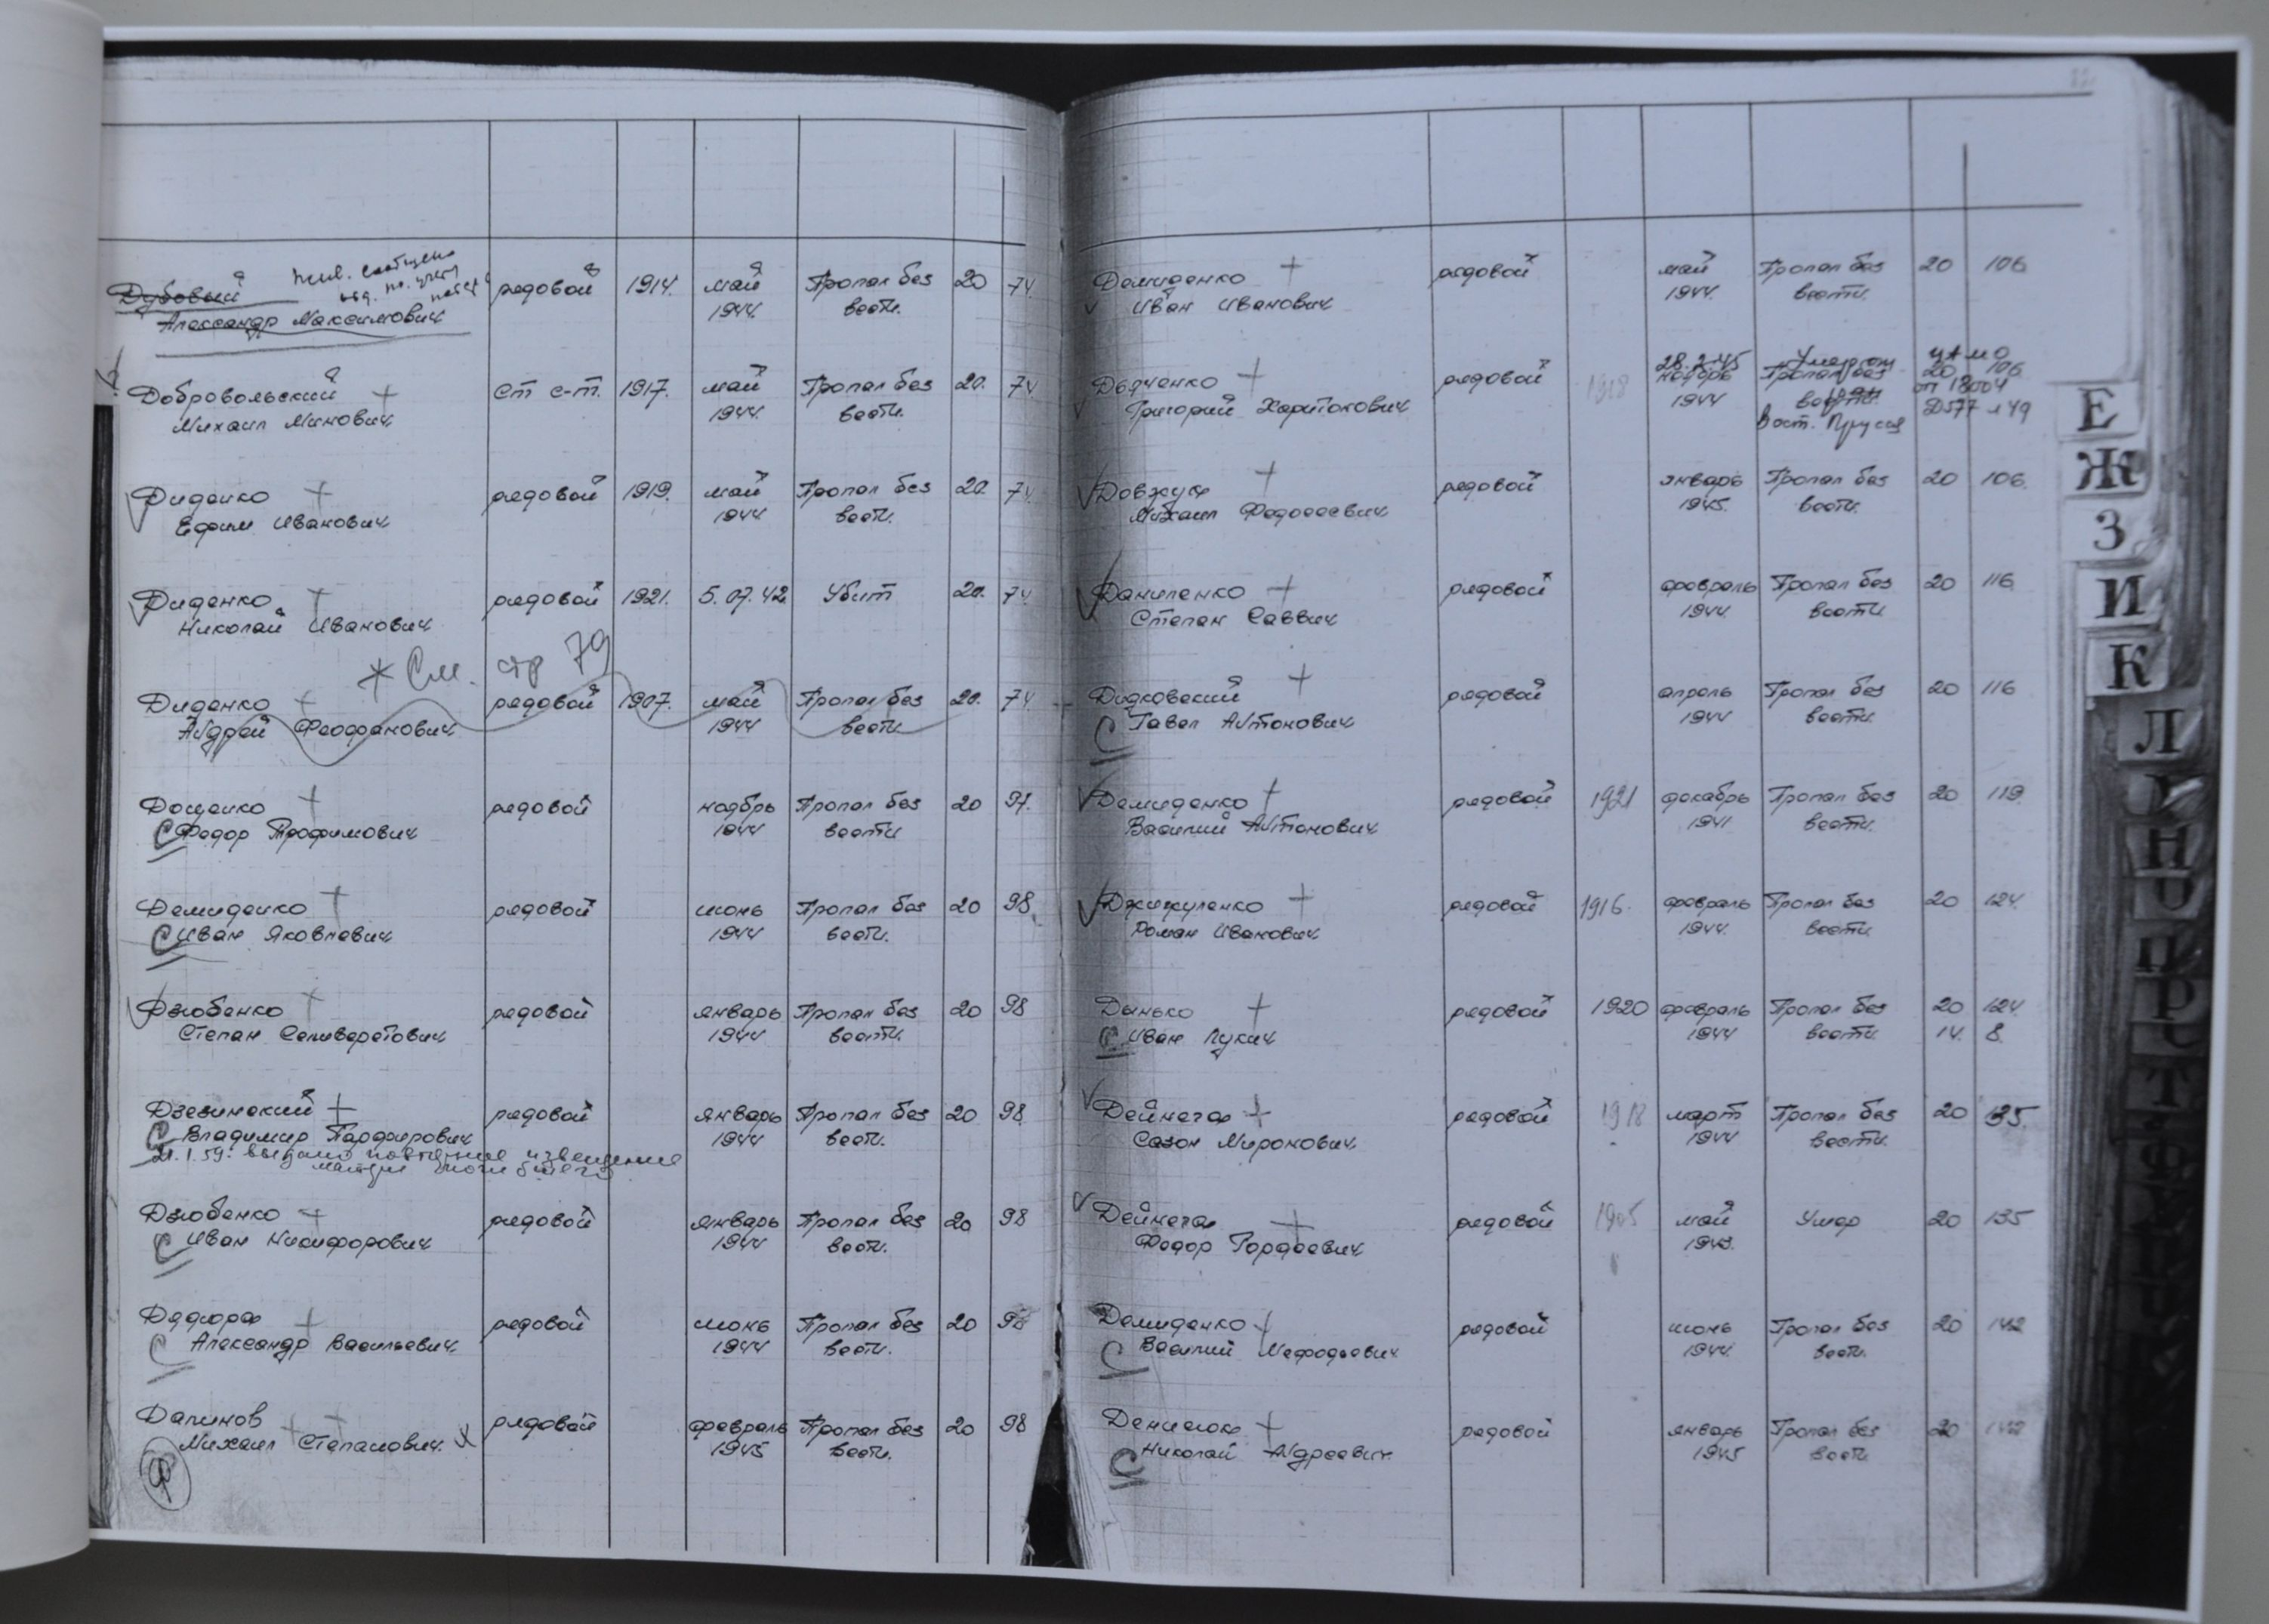 Дубовый редовой 1914. май Пропал без 20 74
Александр Максимович 1944. вести.
Добровольский + ст с-т. 1917. май Пропал без 20. 74
Михаил Минович 1944. вести.
Диденко + рядовой 1919. май Пропал без 20. 74
Ефим Иванович 1944 вести.
Диденко + рядовой 1921. 5.07.42 Убит 20. 74
Николай Иванович
* См. стр 79
Диденко + рядовой 1907. май Пропал без 20. 74
Андрей Феофанович 1944 вести
Доценко + рядовой ноябрь Пропал без 20 97.
С Федор Трофимович 1944 вести
Демиденко + рядовой июнь Пропал без 20 98
С Иван Яковлевич 1944 вести.
Дзюбенко + рядовой январь Пропал без 20 98
Степан Селиверстович 1944 вести.
Дзезинский + рядовой январь Пропал без 20 98
С Владимир Парфирович 1944 вести.
21.1.59. выдано повторное извещение
матери погибшего
Дзюбенко + рядовой январь Пропал без 20 98
С Иван Никифорович 1944 вести.
Дедюра + рядовой июнь Пропал без 20 98
С Александр Васильевич 1944 вести.
Далинов рядовой февраль Пропал без 20 98
Михаил Степанович. х 1945 вести.
Ф
Демиденко + рядовой май Пропал без 20 106
Иван Иванович 1944. вести.
28.2.45 Умер от ЦАМО
Дядченко + рядовой 1918 ноябрь Пропал без 20 106
Григорий Харитонович 1944 вести. оп 18004
Вост. Пруссия Д577 л 49
Довжук + рядовой январь Пропал без 20 106.
Михаил Федосеевич 1945. вести.
Даниленко + рядовой февраль Пропал без 20 116
Степан Саввич 1944. вести
Дидковский + рядовой апрель Пропал без 20 116
С Павел Антонович 1944 вести.
Демиденко + рядовой 1921 декабрь Пропал без 20 119.
Василий Антонович 1941 вести.
Джижуленко + рядовой 1916. февраль Пропал без 20 124.
Роман Иванович 1944. вести
Дынько + рядовой 1920 февраль Пропал без 20 124.
С Иван Лукич 1944 вести. 14. 8.
Дейнега + рядовой 1918 март Пропал без 20 135.
Сазон Миронович 1944 вести.
Дейнега + рядовой 1905 май Умер 20 135
Федор Гордеевич 1943.
Демиденко + рядовой июнь Пропал без 20 142
С Василий Мефодьевич 1944. вести.
Денисюк + рядовой январь Пропал без 20 142
С Николай Андреевич. 1945 вести
Е
Ж
З
И
К
Л
Н
О
П
Р
С
Т